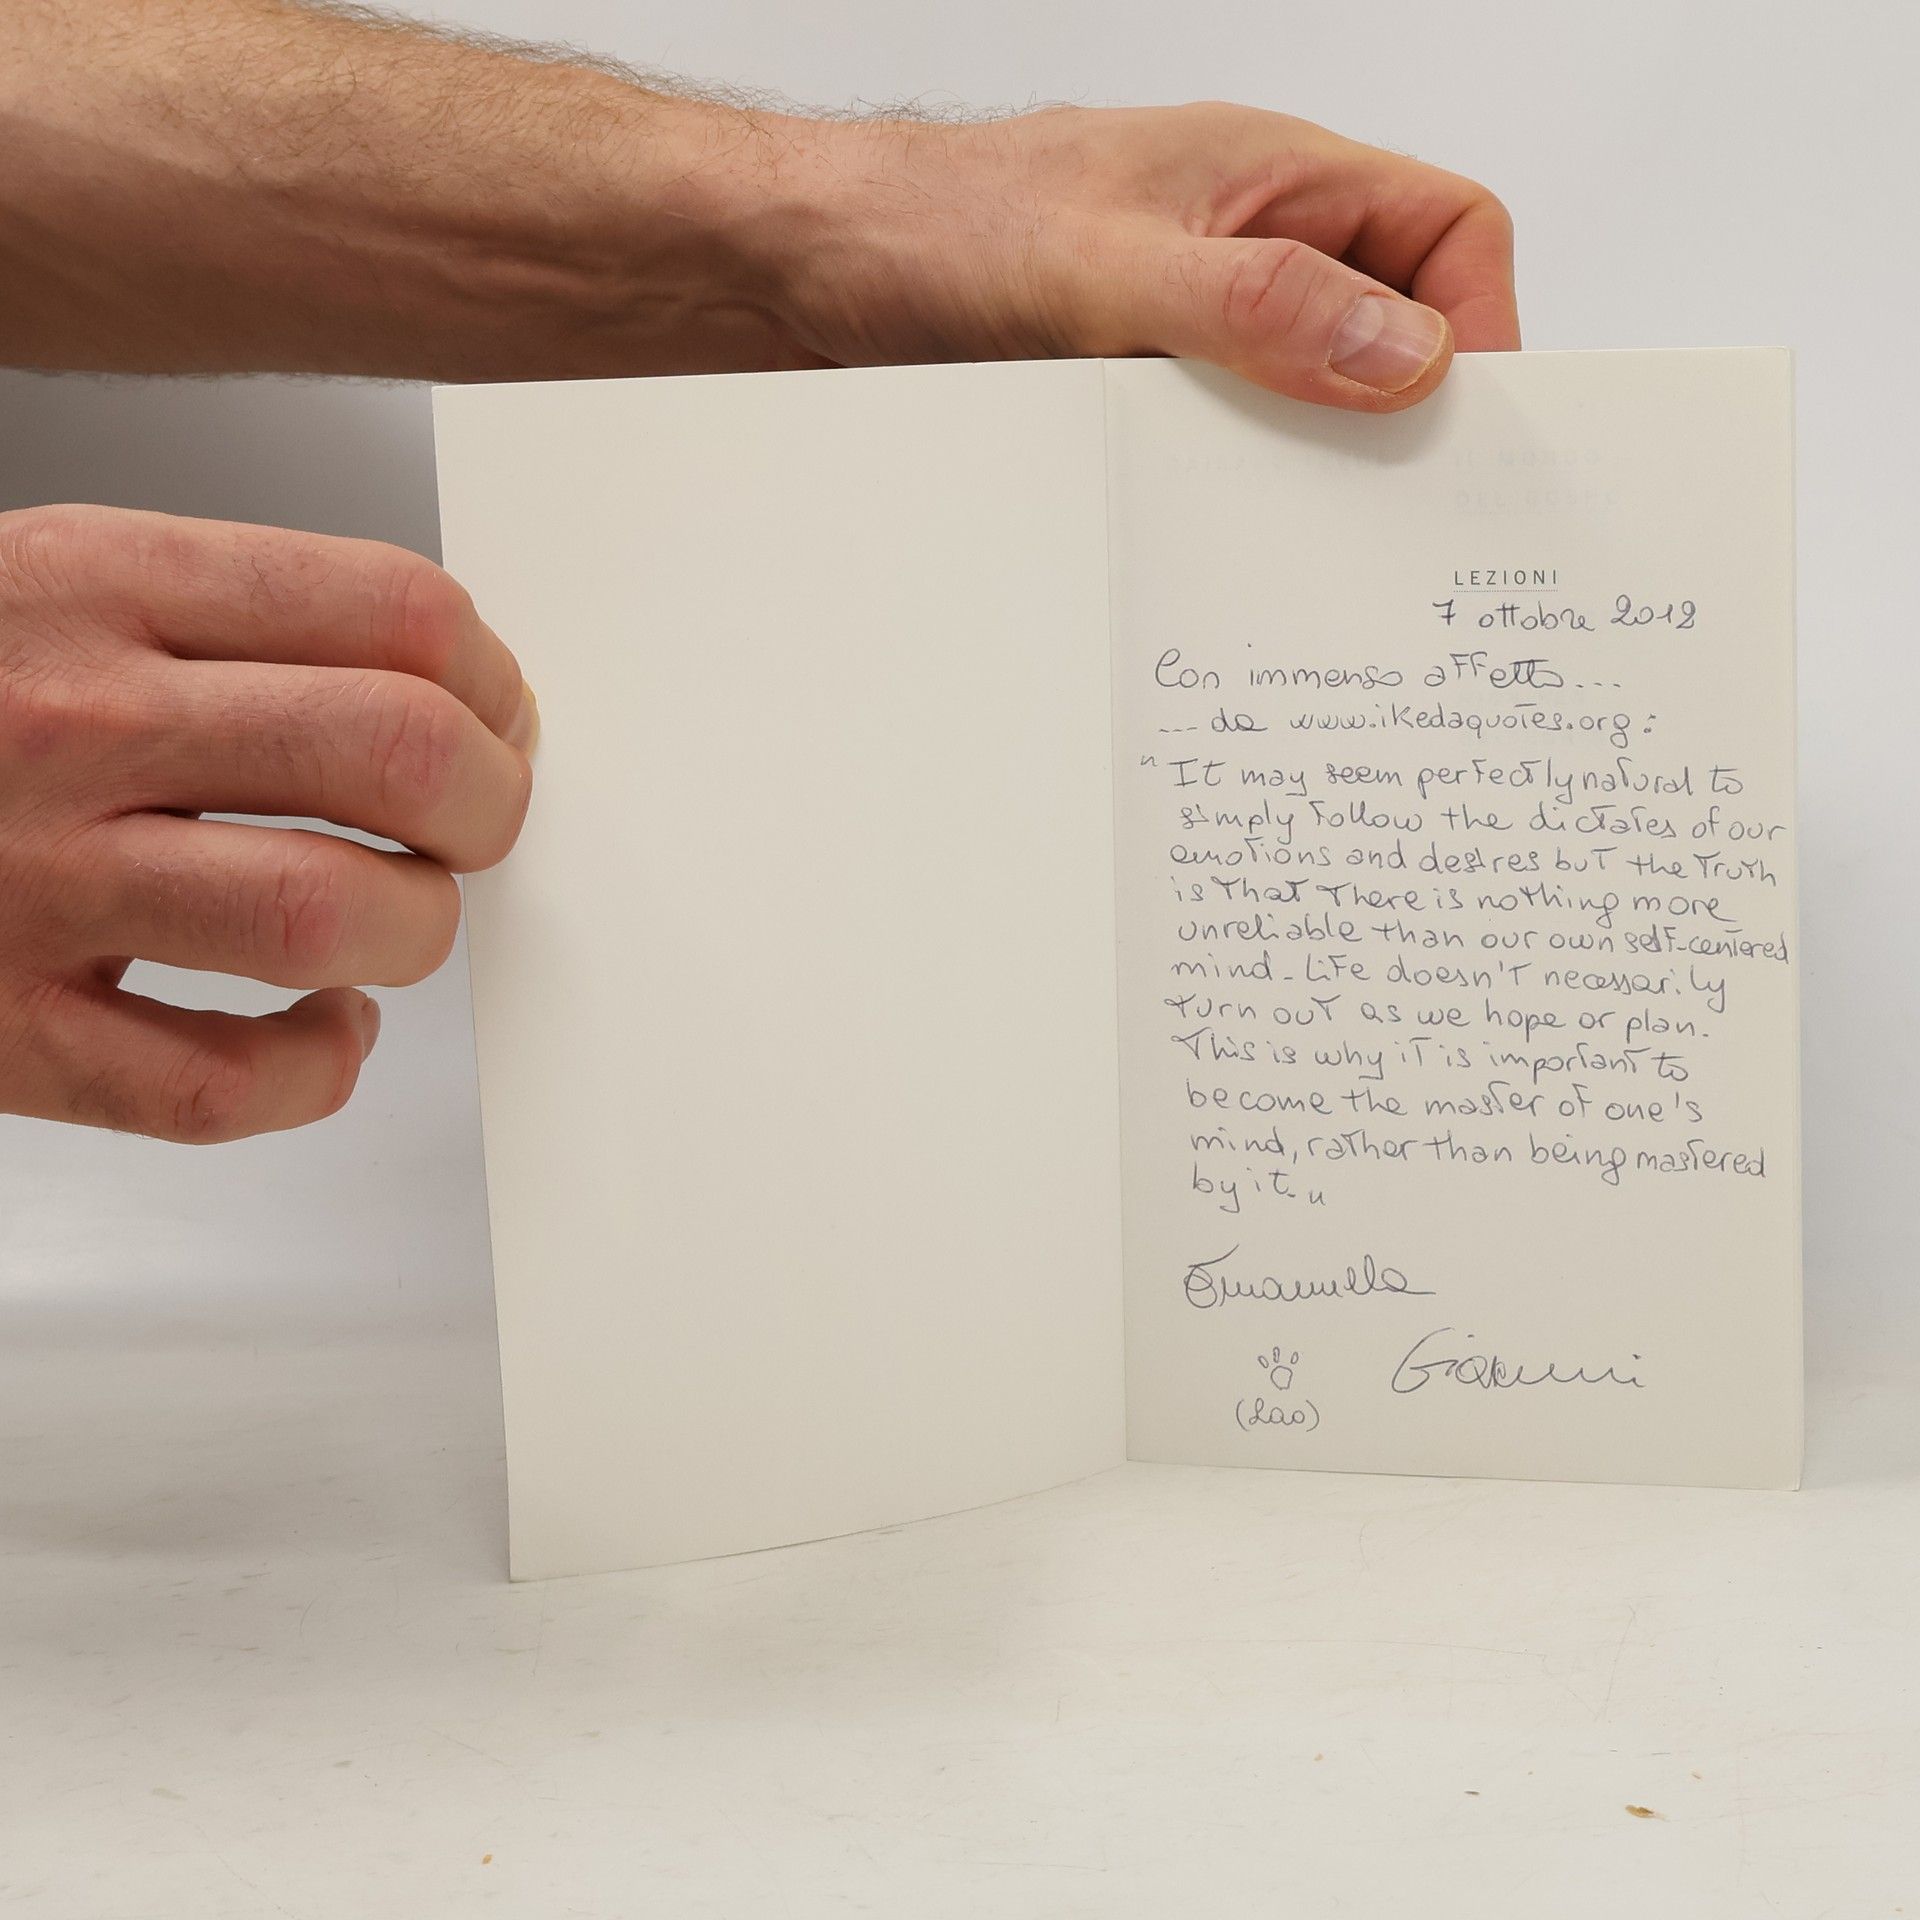 LEZIONI
7 ottobre 2012
Con immenso affetto...
... da www.ikedaquotes.org:
"It may seem perfectly natural to
simply follow the dictates of our
emotions and desires but the truth
is that there is nothing more
unreliable than our own self-centered
mind. Life doesn't necessarily
turn out as we hope or plan.
This is why it is important to
become the master of one's
mind, rather than being mastered
by it."
Emanuela
Gianni
(Lao)